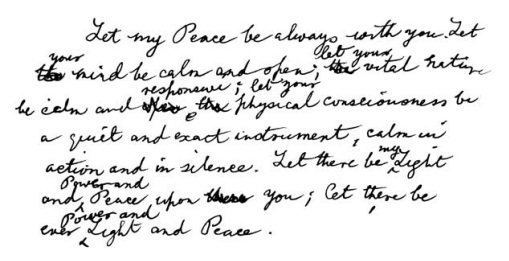 Let my Peace be always with you. Let
your mind be calm and open; let your vital nature
be calm and responsive; let your physical consciousness be
a quiet and exact instrument, calm in
action and in silence. Let there be my Light
and Power and Peace upon you; let there be
ever Power and Light and Peace.